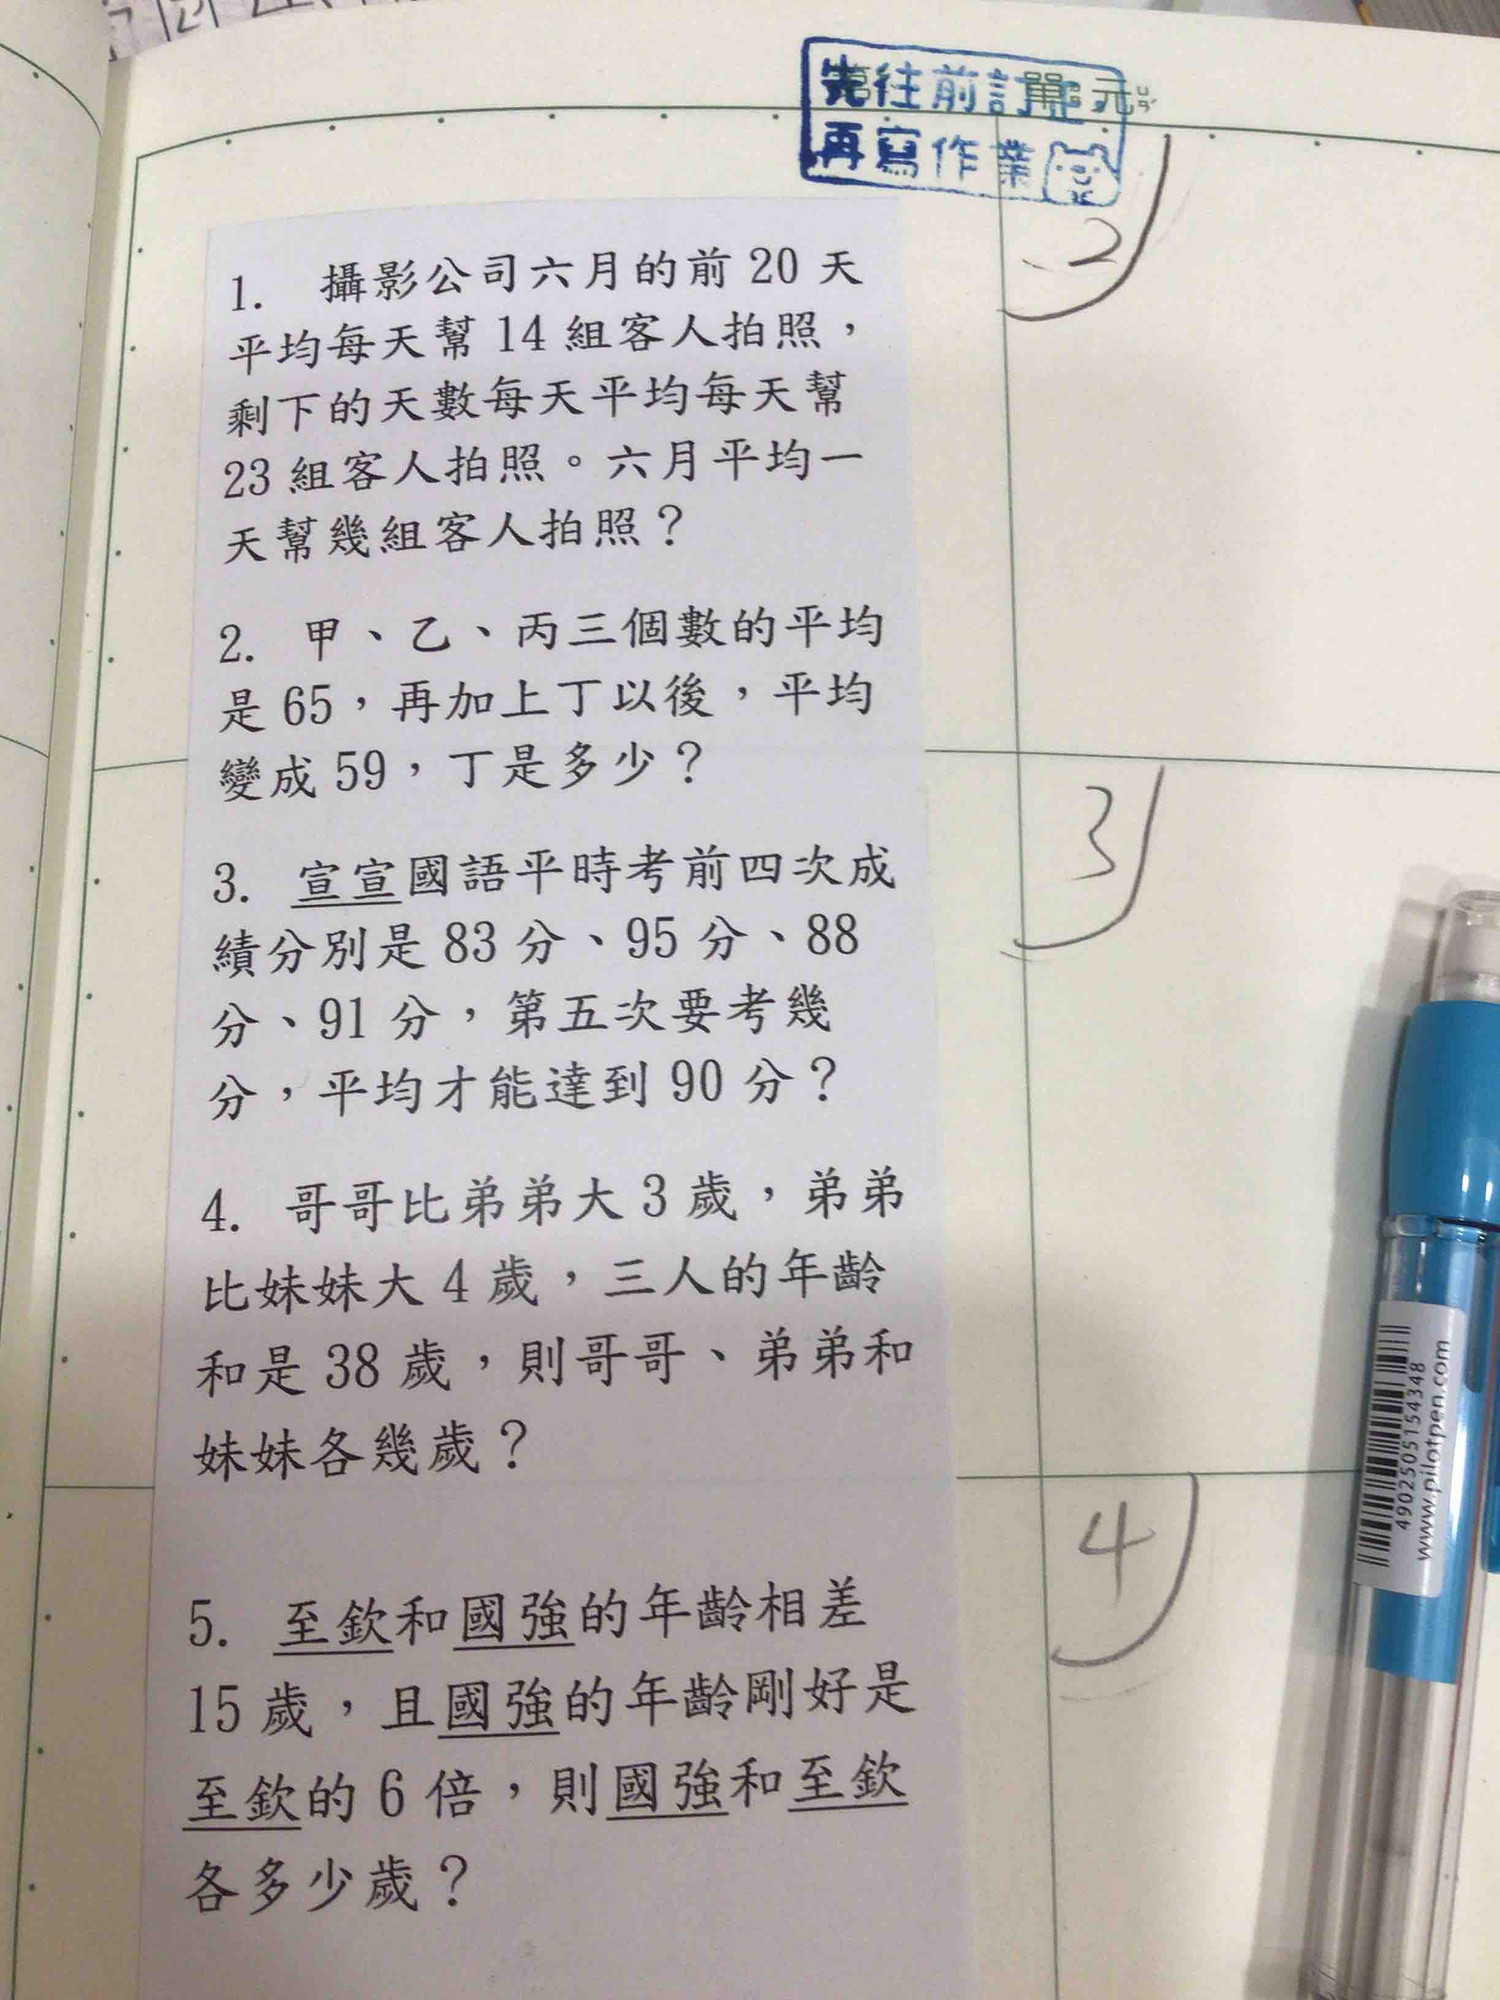 先往前訂正
再寫作業
單元
1. 攝影公司六月的前 20 天
平均每天幫 14 組客人拍照，
剩下的天數每天平均每天幫
23 組客人拍照。六月平均一
天幫幾組客人拍照？
2. 甲、乙、丙三個數的平均
是 65，再加上丁以後，平均
變成 59，丁是多少？
3. 宣宣國語平時考前四次成
績分別是 83 分、95 分、88
分、91 分，第五次要考幾
分，平均才能達到 90 分？
4. 哥哥比弟弟大 3 歲，弟弟
比妹妹大 4 歲，三人的年齡
和是 38 歲，則哥哥、弟弟和
妹妹各幾歲？
5. 至欽和國強的年齡相差
15 歲，且國強的年齡剛好是
至欽的 6 倍，則國強和至欽
各多少歲？
2
3
4
4902505154348
www.pilotpen.com